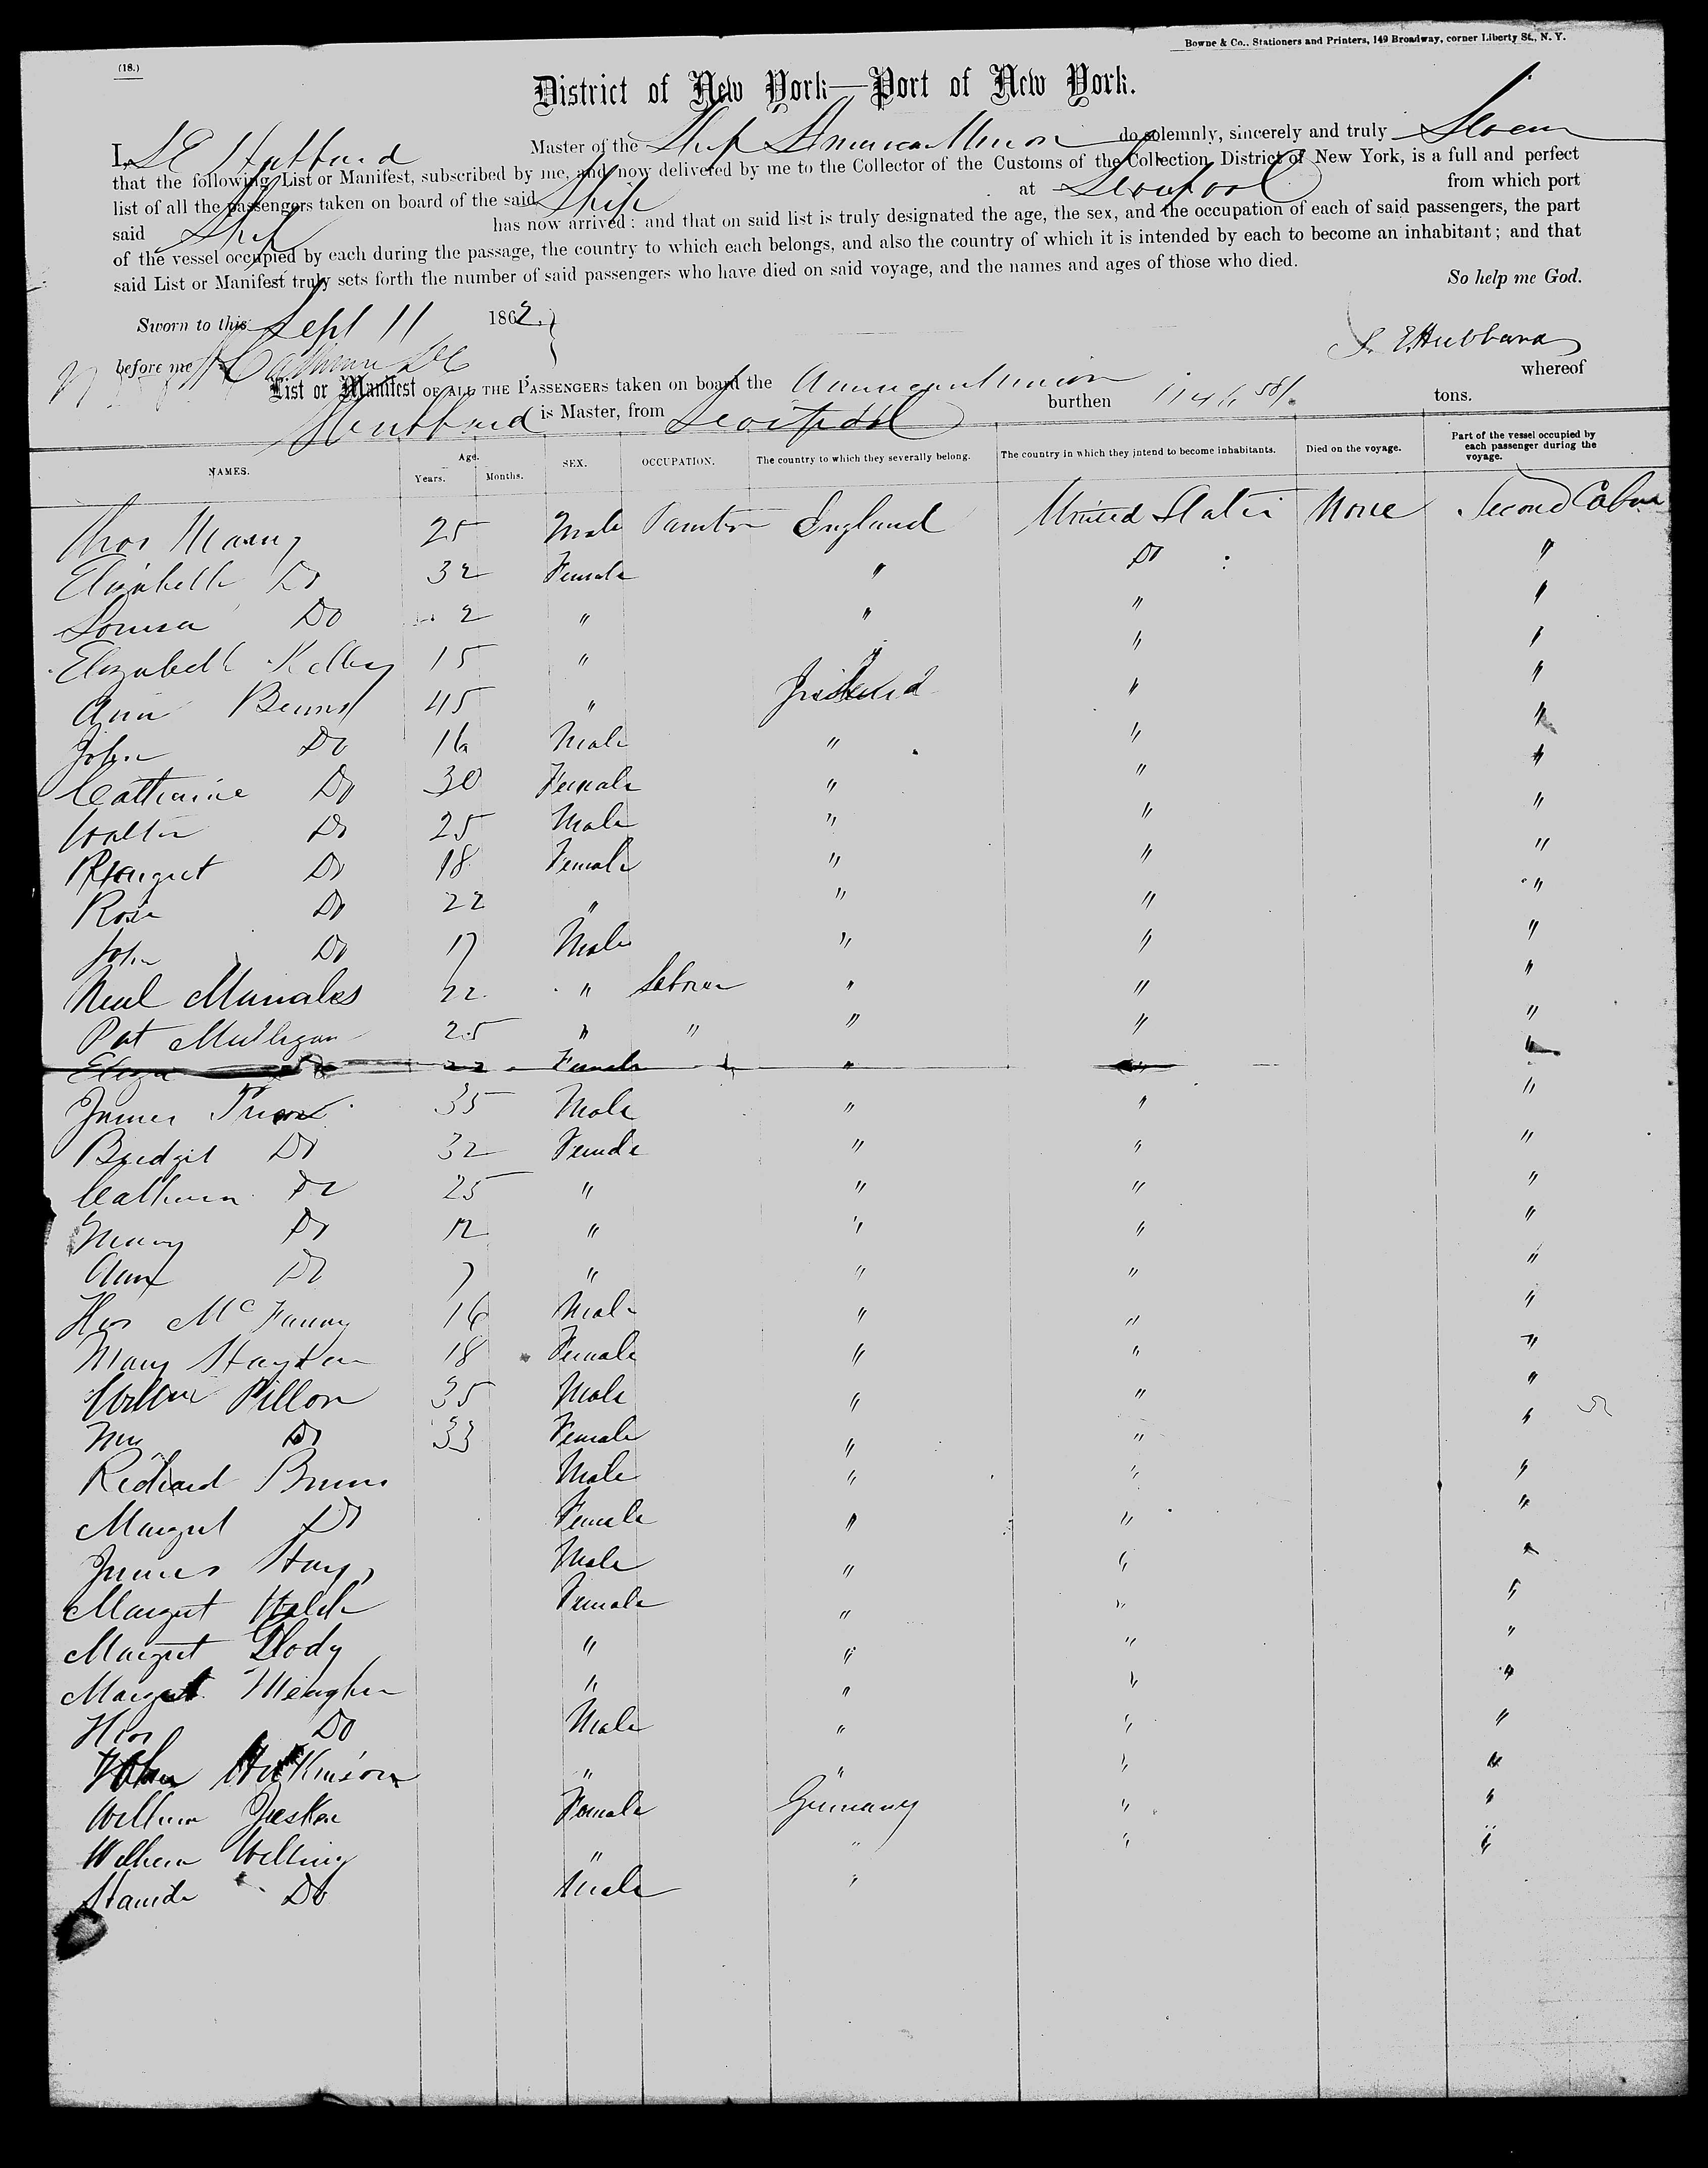 Bowne & Co., Stationers and Printers, 149 Broadway, corner Liberty St., N. Y.
(18.)
District of New York—Port of New York.
I, S E Hubbard Master of the Ship American Union do solemnly, sincerely and truly Swear
that the following List or Manifest, subscribed by me, and now delivered by me to the Collector of the Customs of the Collection District of New York, is a full and perfect
list of all the passengers taken on board of the said Ship at Liverpool from which port
said Ship has now arrived: and that on said list is truly designated the age, the sex, and the occupation of each of said passengers, the part
of the vessel occupied by each during the passage, the country to which each belongs, and also the country of which it is intended by each to become an inhabitant; and that
said List or Manifest truly sets forth the number of said passengers who have died on said voyage, and the names and ages of those who died.
So help me God.
Sworn to this Sept 11 1862.
S. E. Hubbard
before me
List or Manifest OF ALL THE PASSENGERS taken on board the American Union whereof
Hubbard is Master, from Liverpool burthen 1146 58/ tons.
NAMES. Age. Years. Months. SEX. OCCUPATION. The country to which they severally belong. The country in which they intend to become inhabitants. Died on the voyage. Part of the vessel occupied by each passenger during the voyage.
Thos 25 Male England United States None Second Cabin
Elizabeth Do 32 Female " Do "
Louisa Do 2 " " " "
Elizabeth Kelley 15 " " " "
Ann 45 " Ireland " "
John Do 16 Male " " "
Catharine Do 30 Female " " "
Walter Do 25 Male " " "
Margret Do 18 Female " " "
Rose Do 22 " " " "
John Do 17 Male " " "
Neal 22 " Laborer " " "
Pat Mulligan 25 " " " " "
Eliza Do 22 Female " " "
James 35 Male " " "
Bridget Do 32 Female " " "
Catharine Do 25 " " " "
Mary Do 12 " " " "
Ann Do 7 " " " "
Thos Mc 16 Male " " "
Mary 18 Female " " "
Pillon 35 Male " " "
Mrs Do 33 Female " " "
Richard Male " " "
Margret Do Female " " "
James Hays Male " " "
Margret Walsh Female " " "
Margret " " " "
Margret Meagher " " " "
Thos Do Male " " "
" " " "
William Female Germany " "
Welling " " " "
Do Male "